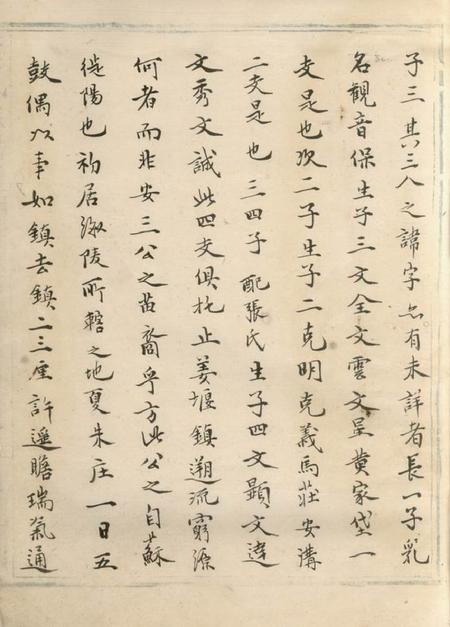 子三其三人之諱字亦有未詳者長一子乳
名觀音保生子三文全文雲文呈黄家垈一
支是也次二子生子二克明克義馬莊安溝
二支是也三四子配張氏生子四文顯文達
文秀文誠此四支俱托止姜堰鎮遡流窮源
何者而非安三公之苗裔乎方此公之自蘇
徙陽也初居海陵所轄之地夏朱庄一日五
鼓偶以事如鎮去鎮二三里許遥瞻瑞氣通